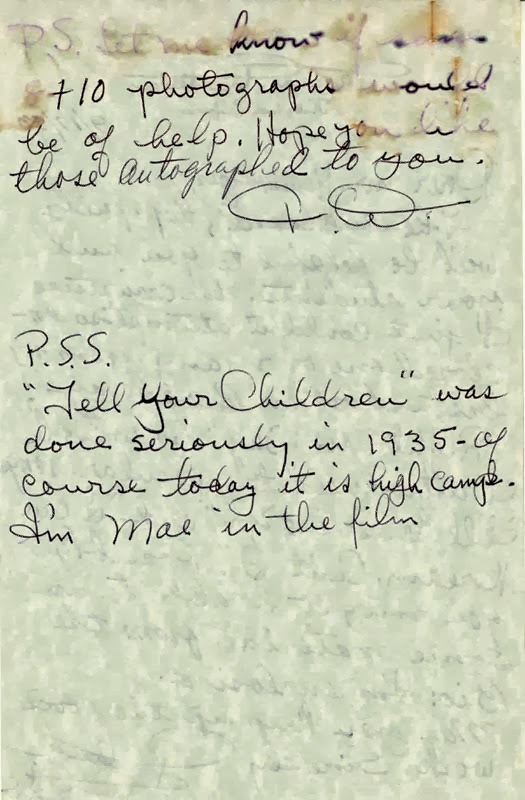 P.S. Let me know if some
+10 photographs would
be of help. Hope you like
those autographed to you.
P.S.S.
"Tell Your Children" was
done seriously in 1935-of
course today it is high camp.
I'm Mae in the film